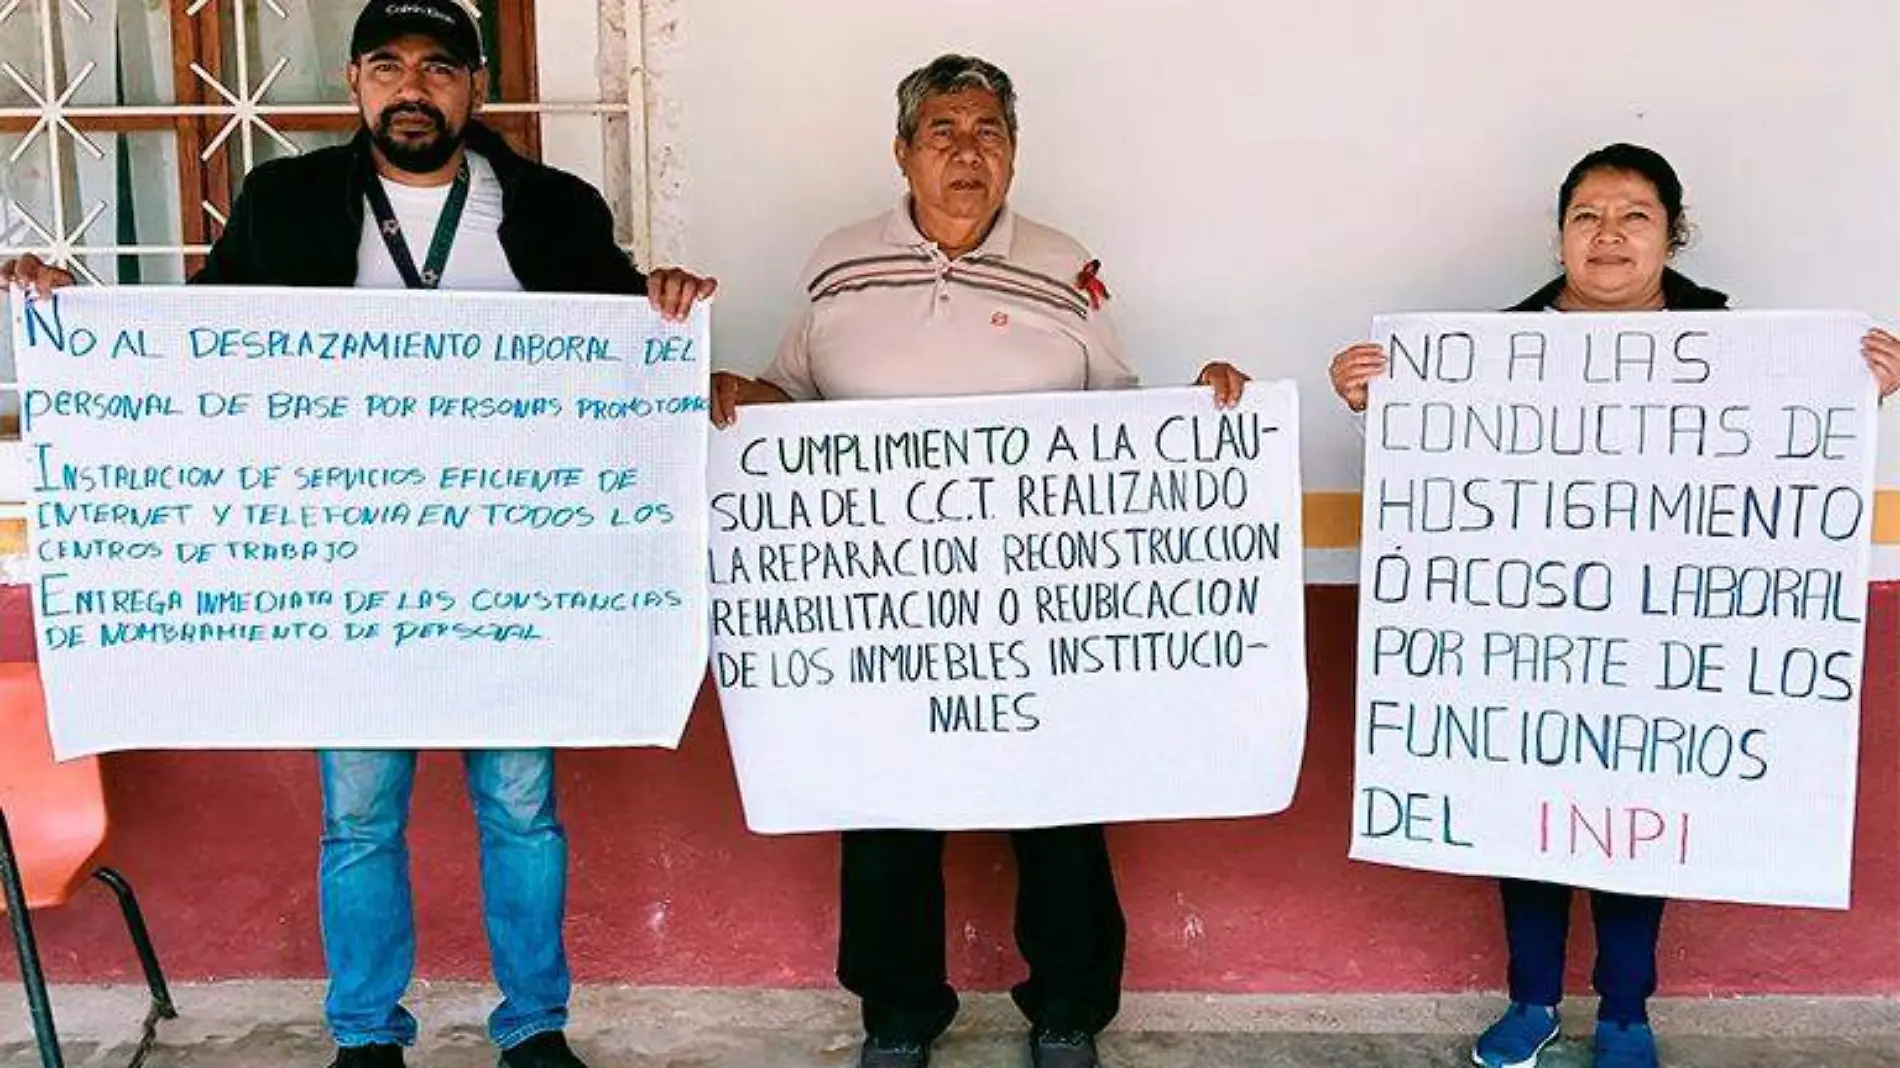 NO AL DESPLAZAMIENTO LABORAL DEL
PERSONAL DE BASE POR PERSONAS
INSTALACION DE SERVICIOS EFICIENTE DE
INTERNET Y TELEFONIA EN TODOS LOS
CENTROS DE TRABAJO
ENTREGA INMEDIATA DE LAS CONSTANCIAS
DE NOMBRAMIENTO DE PERSONAL
CUMPLIMIENTO A LA CLAU-
SULA DEL C.C.T. REALIZANDO
LA REPARACION RECONSTRUCCION
REHABILITACION O REUBICACION
DE LOS INMUEBLES INSTITUCIO-
NALES
NO A LAS
CONDUCTAS DE
HOSTIGAMIENTO
Ó ACOSO LABORAL
POR PARTE DE LOS
FUNCIONARIOS
DEL INPI